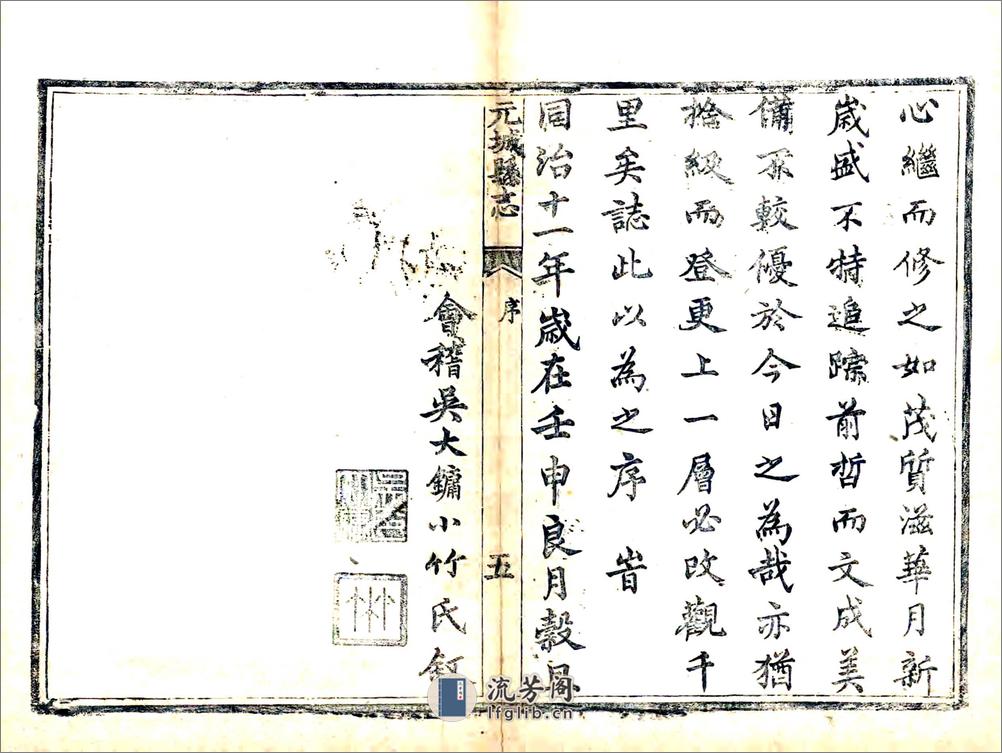 心繼而修之如茂質滋華月新
歲盛不特追踪前哲而文成美
備不較優於今日之為哉亦猶
拾級而登更上一層必改觀千
里矣誌此以為之序 旹
同治十一年歲在壬申良月穀旦
元城縣志 序 五
會稽吳大鏞小竹氏敘
流芳阁
lfglib.cn